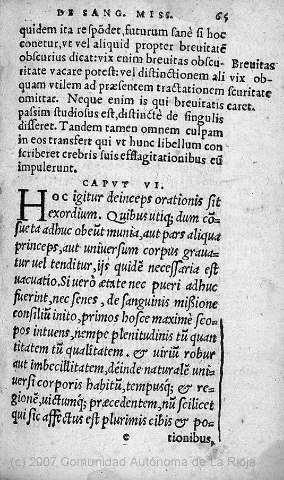 DE SANG. MISS. 65
quidem ita respõdet, futurum sanè si hoc
conetur, vt vel aliquid propter breuitatẽ
obscurius dicat: vix enim breuitas obscu-
ritate vacare potest: vel distinctionem ali
quam vtilem ad præsentem tractationem
omittat. Neque enim is qui breuitatis
passim studiosus est, distinctè de singulis
differet. Tandem tamen omnem culpam
in eos transfert qui vt hunc libellum con
scriberet crebris suis efflagitationibus eũ
impulerunt.
Breuitas
vix ob-
scuritate
caret.
CAPVT VI.
Hoc igitur deinceps orationis sit
exordium. Quibus utiq; dum cõ-
sueta adhuc obeũt munia, aut pars aliqua
princeps, aut uniuersum corpus graua-
tur vel tenditur, ijs quidẽ necessaria est
uacuatio. Si uerò ætate nec pueri adhuc
fuerint, nec senes, de sanguinis mißione
consiliũ inito, primos hosce maximè sco-
pos intuens, nempe plenitudinis tũ quan
titatem tũ qualitatem. & uiriũ robur
aut imbecillitatem, deinde naturalẽ uni-
uersi corporis habitũ, tempusq; & re-
gionẽ, uictumq; præcedentem, nũ scilicet
qui sic affectus est plurimis cibis & po-
e
tionibus,
(c) 2007 Comunidad Autónoma de La Rioja